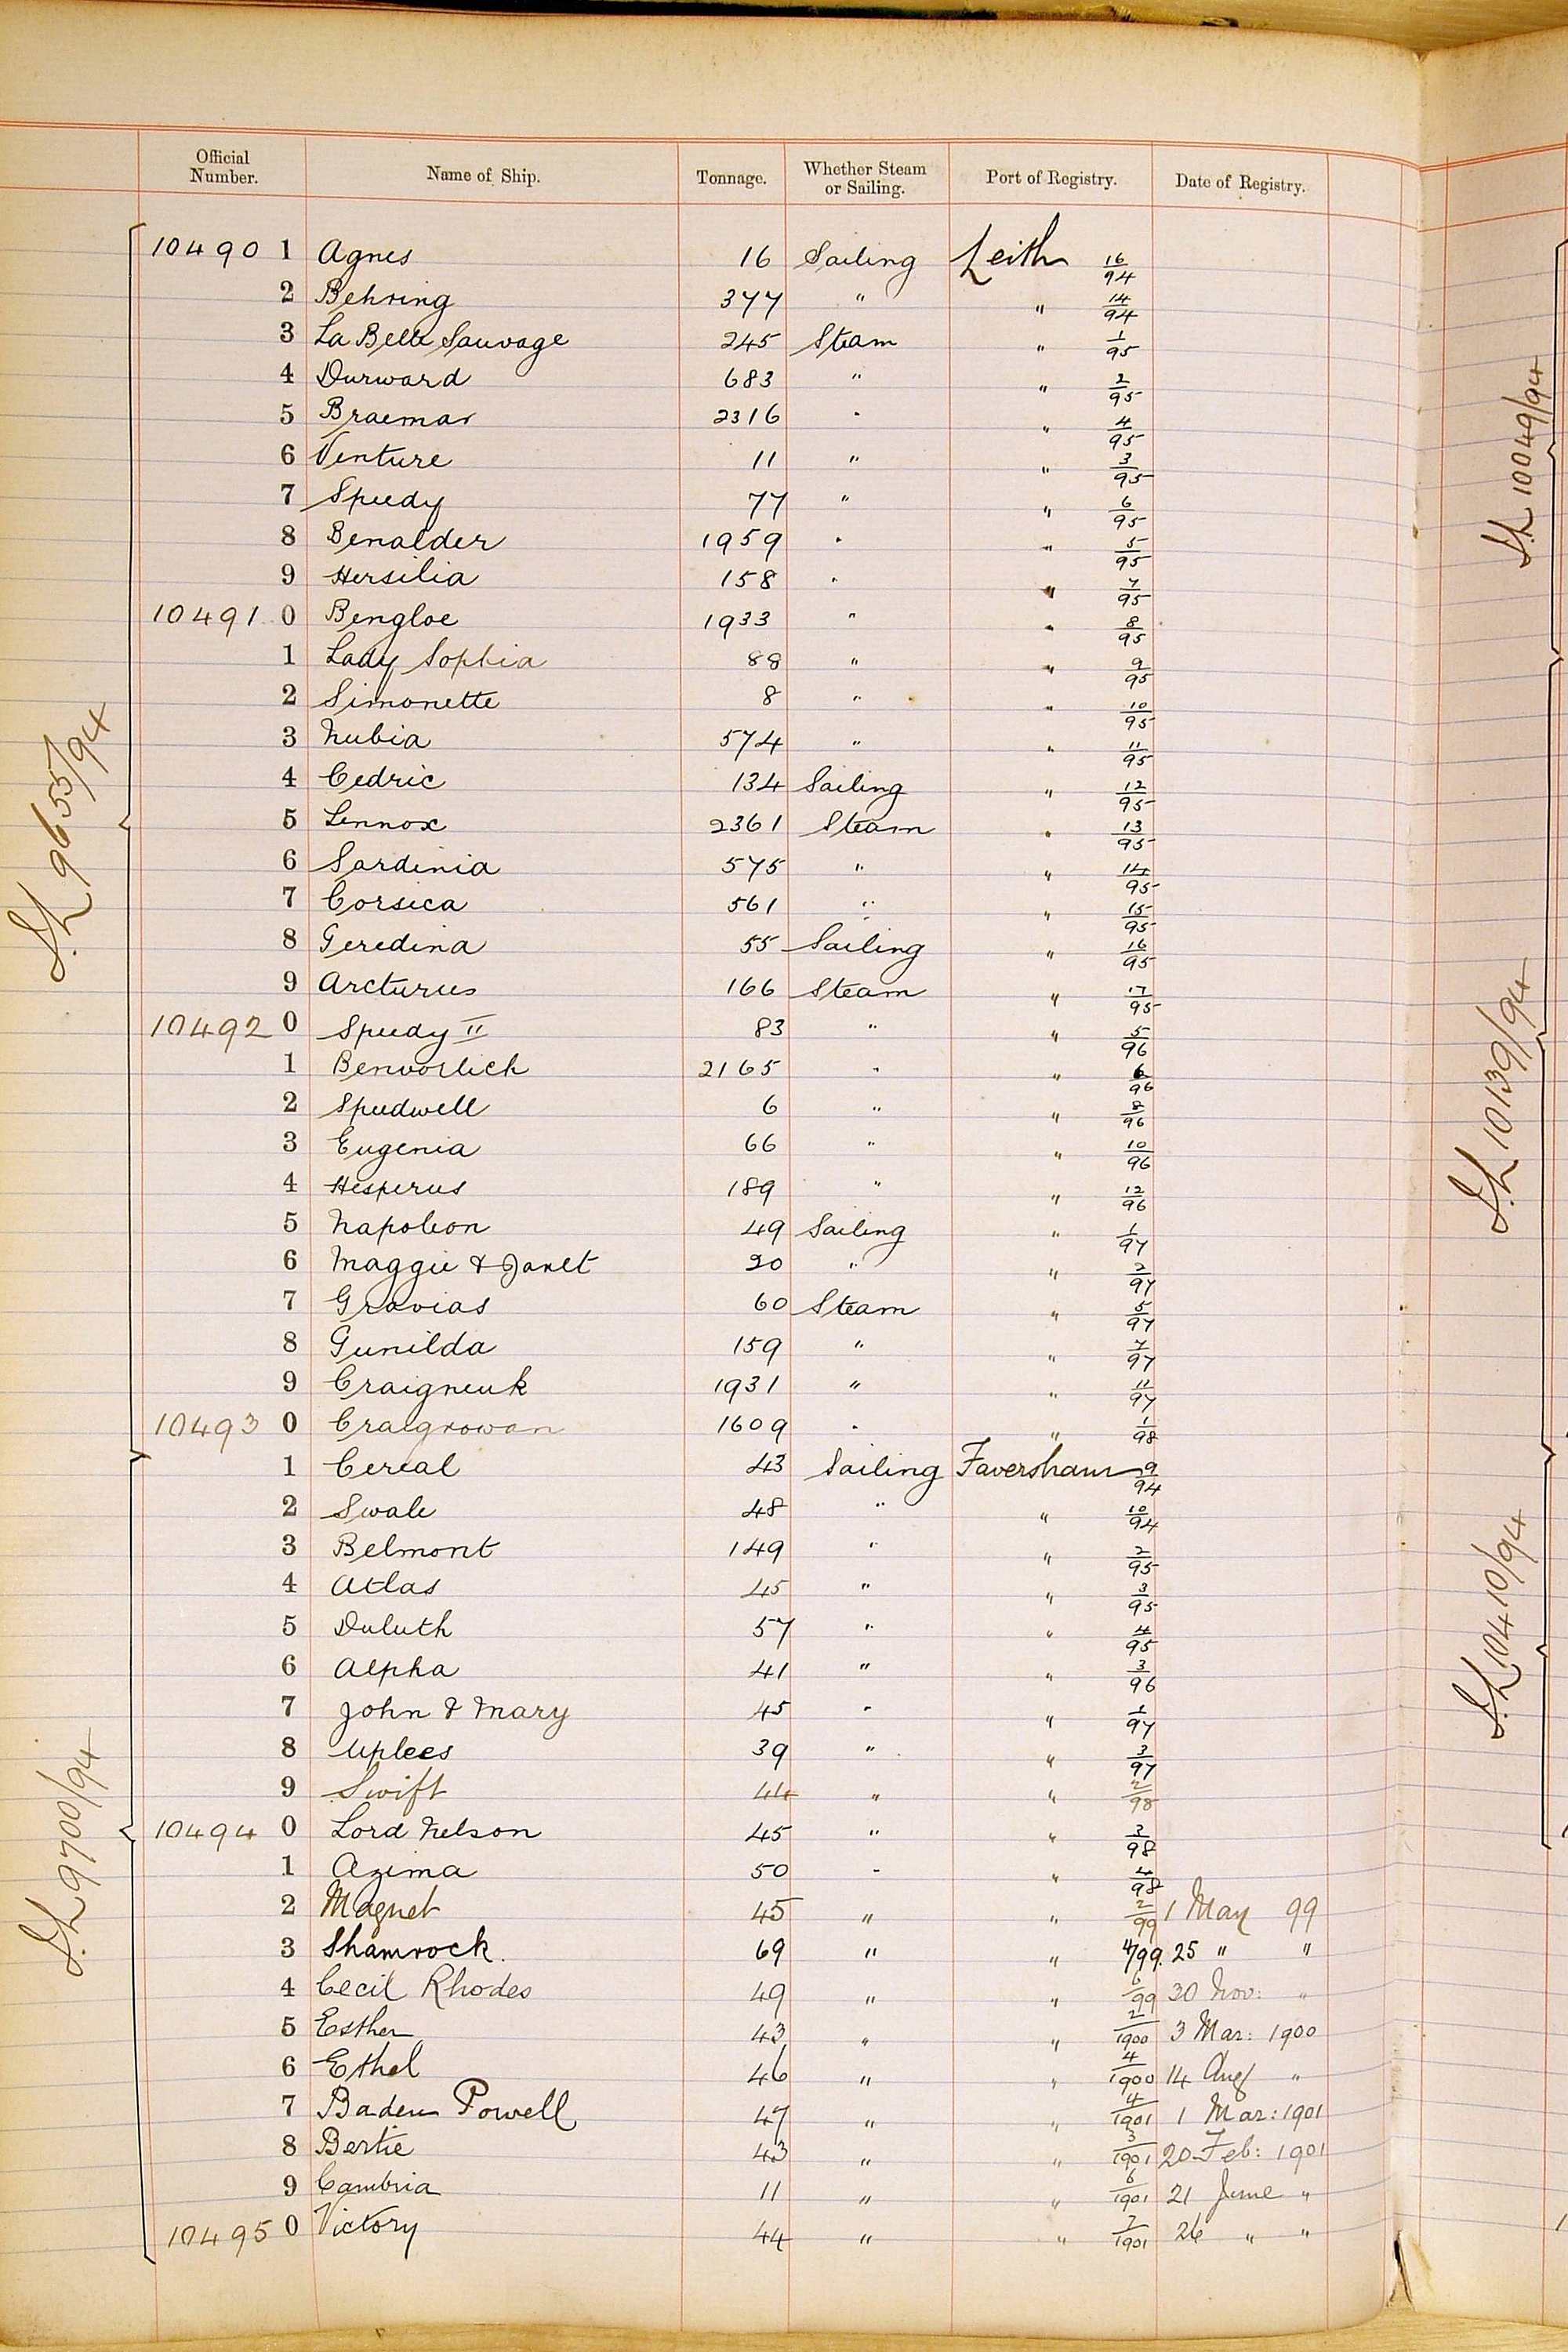 Official Number. Name of Ship. Tonnage. Whether Steam or Sailing. Port of Registry. Date of Registry.
10490 1 Agnes 16 Sailing Leith 16/94
2 Behring 377 " " 14/94
3 La Belle Sauvage 245 Steam " 1/95
4 Durward 683 " " 2/95
5 Braemar 2316 " " 4/95
6 Venture 11 " " 3/95
7 Speedy 77 " " 6/95
8 Benalder 1959 " " 5/95
9 Hersilia 158 " " 7/95
10491 0 Bengloe 1933 " " 8/95
1 Lady Sophia 88 " " 9/95
2 Simonette 8 " " 10/95
3 Nubia 574 " " 11/95
4 Cedric 134 Sailing " 12/95
5 Lennox 2361 Steam " 13/95
6 Sardinia 575 " " 14/95
7 Corsica 561 " " 15/95
8 Geredina 55 Sailing " 16/95
9 Arcturus 166 Steam " 17/95
10492 0 Speedy II 83 " " 5/96
1 Benvorlich 2165 " " 6/96
2 Speedwell 6 " " 8/96
3 Eugenia 66 " " 10/96
4 Hesperus 189 " " 12/96
5 Napoleon 49 Sailing " 1/97
6 Maggie & Janet 20 " " 2/97
7 Gravias 60 Steam " 5/97
8 Gunilda 159 " " 7/97
9 Craigneuk 1931 " " 11/97
10493 0 Craigrowan 1609 " " 1/98
1 Cereal 43 Sailing Faversham 9/94
2 Swale 48 " " 10/94
3 Belmont 149 " " 2/95
4 Atlas 45 " " 3/95
5 Duluth 57 " " 4/95
6 Alpha 41 " " 3/96
7 John & Mary 45 " " 1/97
8 Uplees 39 " " 3/97
9 Swift 44 " " 2/98
10494 0 Lord Nelson 45 " " 3/98
1 Azima 50 " " 4/98
2 Magnet 45 " " 2/99 1 May 99
3 Shamrock. 69 " " 4/99. 25 " "
4 Cecil Rhodes 49 " " 6/99 30 Nov: "
5 Esther 43 " " 2/1900 3 Mar: 1900
6 Ethel 46 " " 4/1900 14 Aug "
7 Baden Powell 47 " " 4/1901 1 Mar: 1901
8 Bertie 43 " " 3/1901 20 Feb: 1901
9 Cambria 11 " " 6/1901 21 June "
10495 0 Victory 44 " " 7/1901 26 " "
9655/94
9700/94
10049/94
10139/94
10410/94